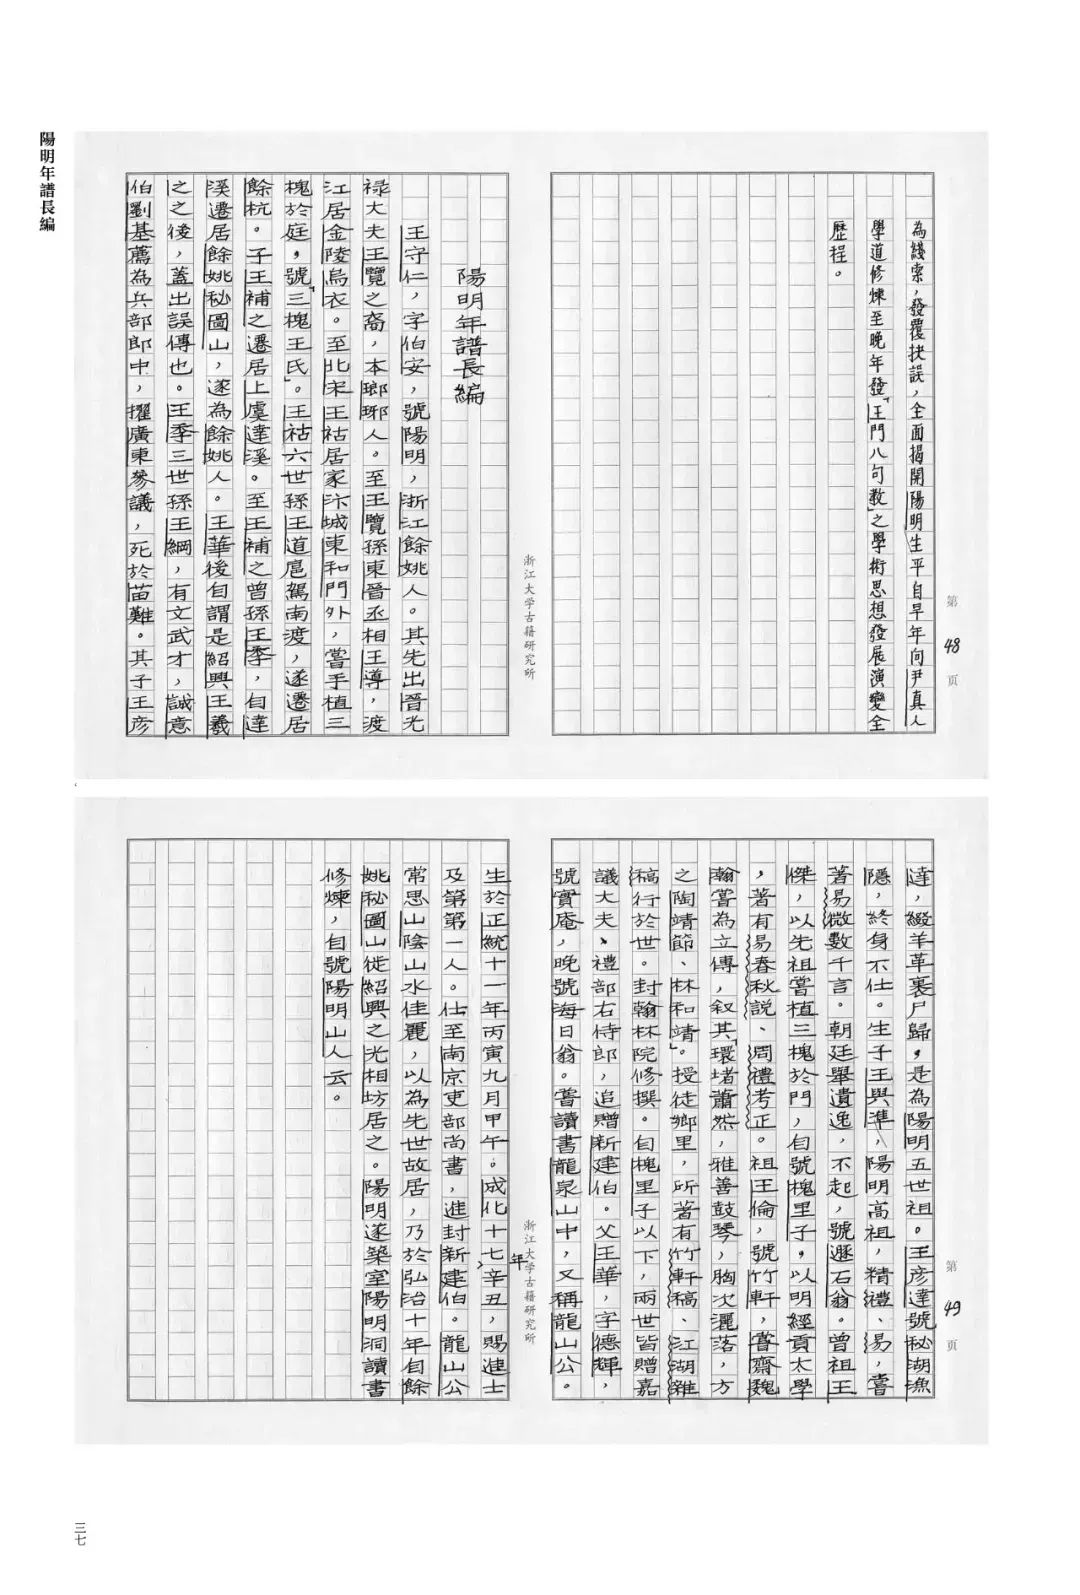 陽明年譜長編
為綫索，發覆抉誤，全面揭開陽明生平自早年向尹真人
學道修煉至晚年發「王門八句教」之學術思想發展演變全
歷程。
第48页
浙江大学古籍研究所
陽明年譜長編
王守仁，字伯安，號陽明，浙江餘姚人。其先出晉光
禄大夫王覽之裔，本瑯琊人。至王覽孫東晉丞相王導，渡
江居金陵烏衣。至北宋王祜居家汴城東和門外，嘗手植三
槐於庭，號「三槐王氏」。王祜六世孫王道扈駕南渡，遂遷居
餘杭。子王補之遷居上虞達溪。至王補之曾孫王季，自達
溪遷居餘姚秘圖山，遂為餘姚人。王華後自謂是紹興王羲
之之後，蓋出誤傳也。王季三世孫王綱，有文武才，誠意
伯劉基薦為兵部郎中，擢廣東參議，死於苗難。其子王彦
達，綴羊革裹尸歸，是為陽明五世祖。王彦達號秘湖漁
隱，終身不仕。生子王與準，陽明高祖，精禮、易，嘗
著易微數千言。朝廷舉遺逸，不起，號遯石翁。曾祖王
傑，以先祖嘗植三槐於門，自號槐里子，以明經貢太學
，著有易春秋説、周禮考正。祖王倫，號竹軒，嘗齋魏
瀚嘗為立傳，叙其「環堵蕭然，雅善鼓琴，胸次灑落，方
之陶靖節、林和靖」。授徒鄉里，所著有竹軒稿、江湖雜
稿行於世。封翰林院修撰。自槐里子以下，兩世皆贈嘉
議大夫、禮部右侍郎，追贈新建伯。父王華，字德輝，
號實庵，晚號海日翁。嘗讀書龍泉山中，又稱龍山公。
第49页
浙江大学古籍研究所
生於正統十一年丙寅九月甲午。成化十七年辛丑，賜進士
及第第一人。仕至南京吏部尚書，進封新建伯。龍山公
常思山陰山水佳麗，以為先世故居，乃於弘治十年自餘
姚秘圖山徙紹興之光相坊居之。陽明遂築室陽明洞讀書
修煉，自號陽明山人云。
三七